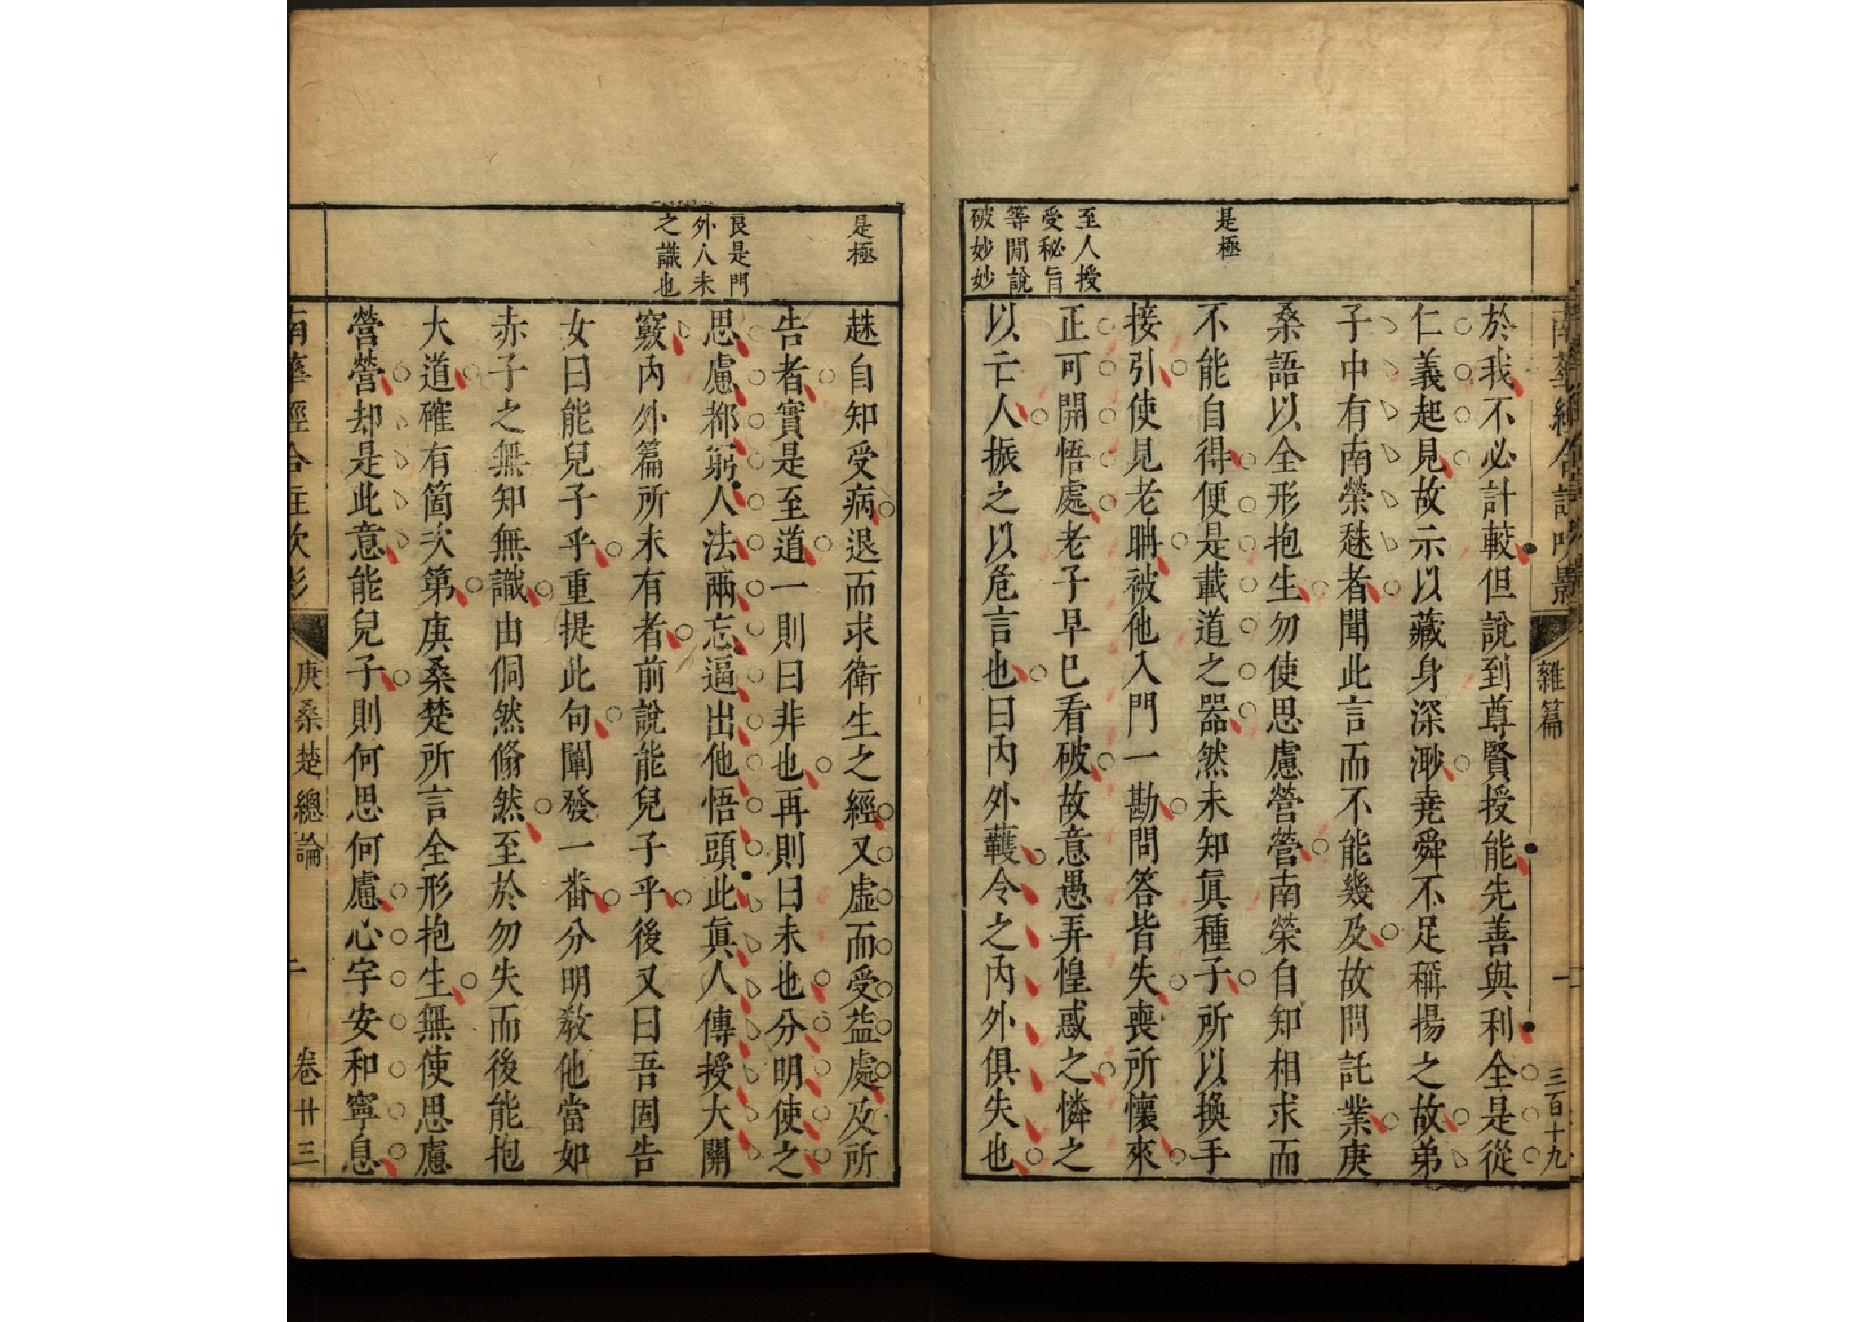 雜篇
三百十九
是極
至人授
受秘旨
等閒說
破妙妙
於我不必計較但說到尊賢授能先善與利全是從
仁義起見故示以藏身深渺堯舜不足稱揚之故弟
子中有南榮趎者聞此言而不能幾及故問託業庚
桑語以全形抱生勿使思慮營營南榮自知相求而
不能自得便是載道之器然未知眞種子所以換手
接引使見老聃被他入門一勘問答皆失喪所懷來
正可開悟處老子早已看破故意愚弄惶惑之憐之
以亡人振之以危言也曰內外韄令之內外俱失也
是極
良是門
外人未
之識也
趎自知受病退而求衛生之經又虛而受益處及所
告者實是至道一則曰非也再則曰未也分明使之
思慮都窮人法兩忘逼出他悟頭此眞人傳授大關
竅內外篇所未有者前說能兒子乎後又曰吾固告
女曰能兒子乎重提此句闡發一番分明教他當如
赤子之無知無識由侗然翛然至於勿失而後能抱
大道確有箇次第庚桑楚所言全形抱生無使思慮
營營却是此意能兒子則何思何慮心宇安和寧息
庚桑楚總論
卷廿三